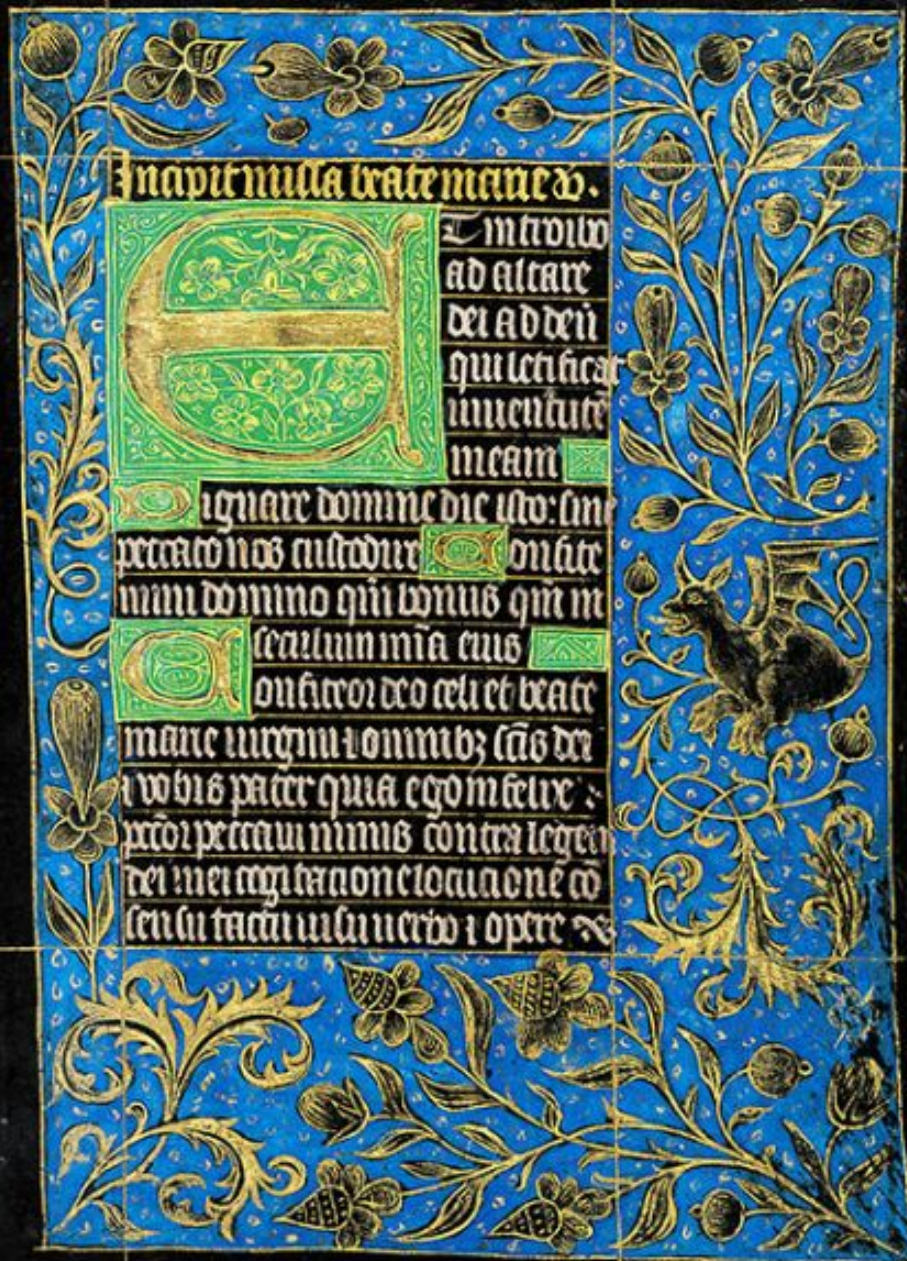 Incipit missa beate marie v.
Et introibo
ad altare
dei Ad deū
qui letificat
iuuentutē
meam
Dignare domine die isto: sine
peccato nos custodire Confite
mini domino qm̄ bonus qm̄ in
seculum mīa eius
Confiteor deo celi et beate
marie uirgini ⁊ omnibꝫ sc̄is dei
⁊ vobis pater quia ego infelix
pctōr peccaui nimis contra legem
dei mei cogitatione locutione cō
sensu tactu uisu uerbo ⁊ opere